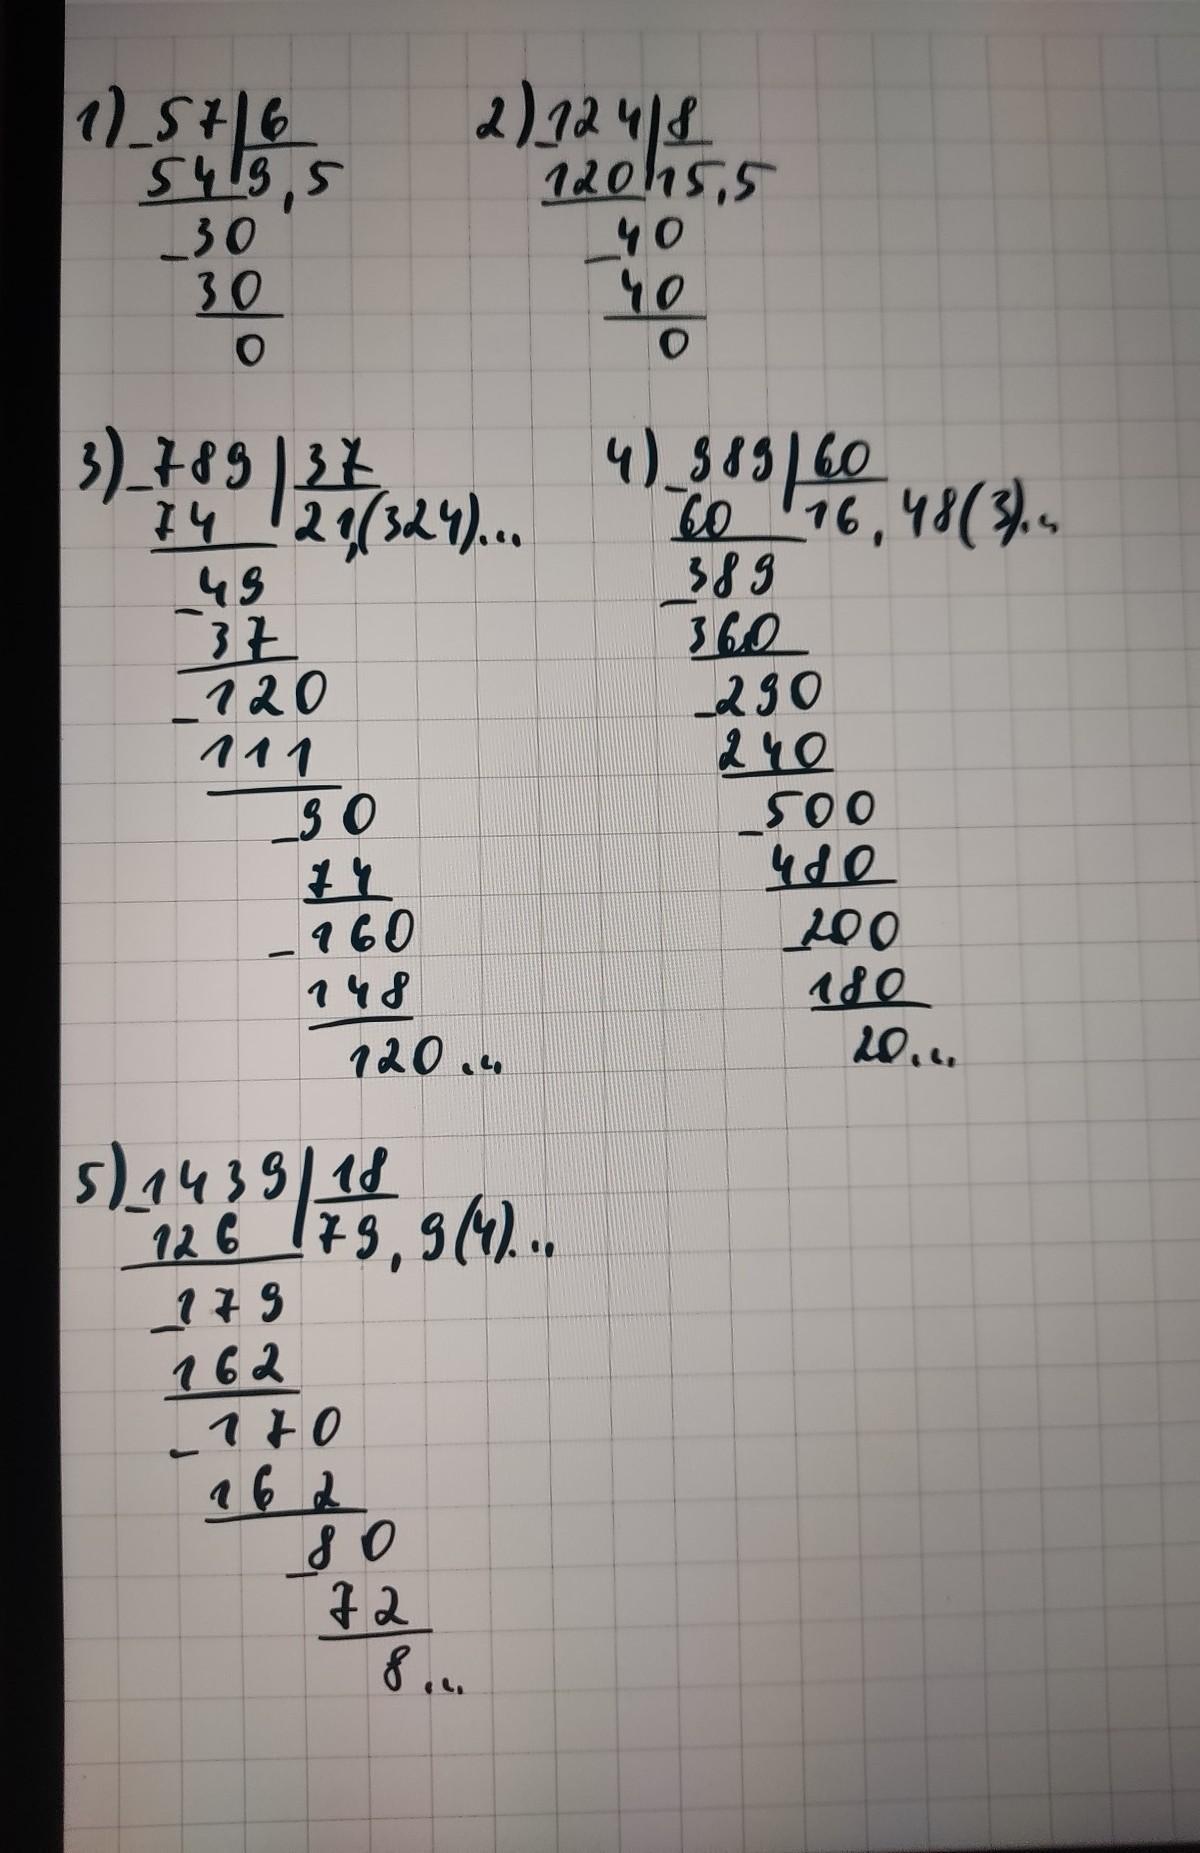 1) _57|6
54|9,5
_30
30
0
2) _124|8
120|15,5
_40
40
0
3) _789|37
74|21,(324)...
_49
37
_120
111
_90
74
_160
148
120...
4) _989|60
60|16,48(3)...
_389
360
_290
240
_500
480
_200
180
20...
5) _1439|18
126|79,9(4)...
_179
162
_170
162
_80
72
8...